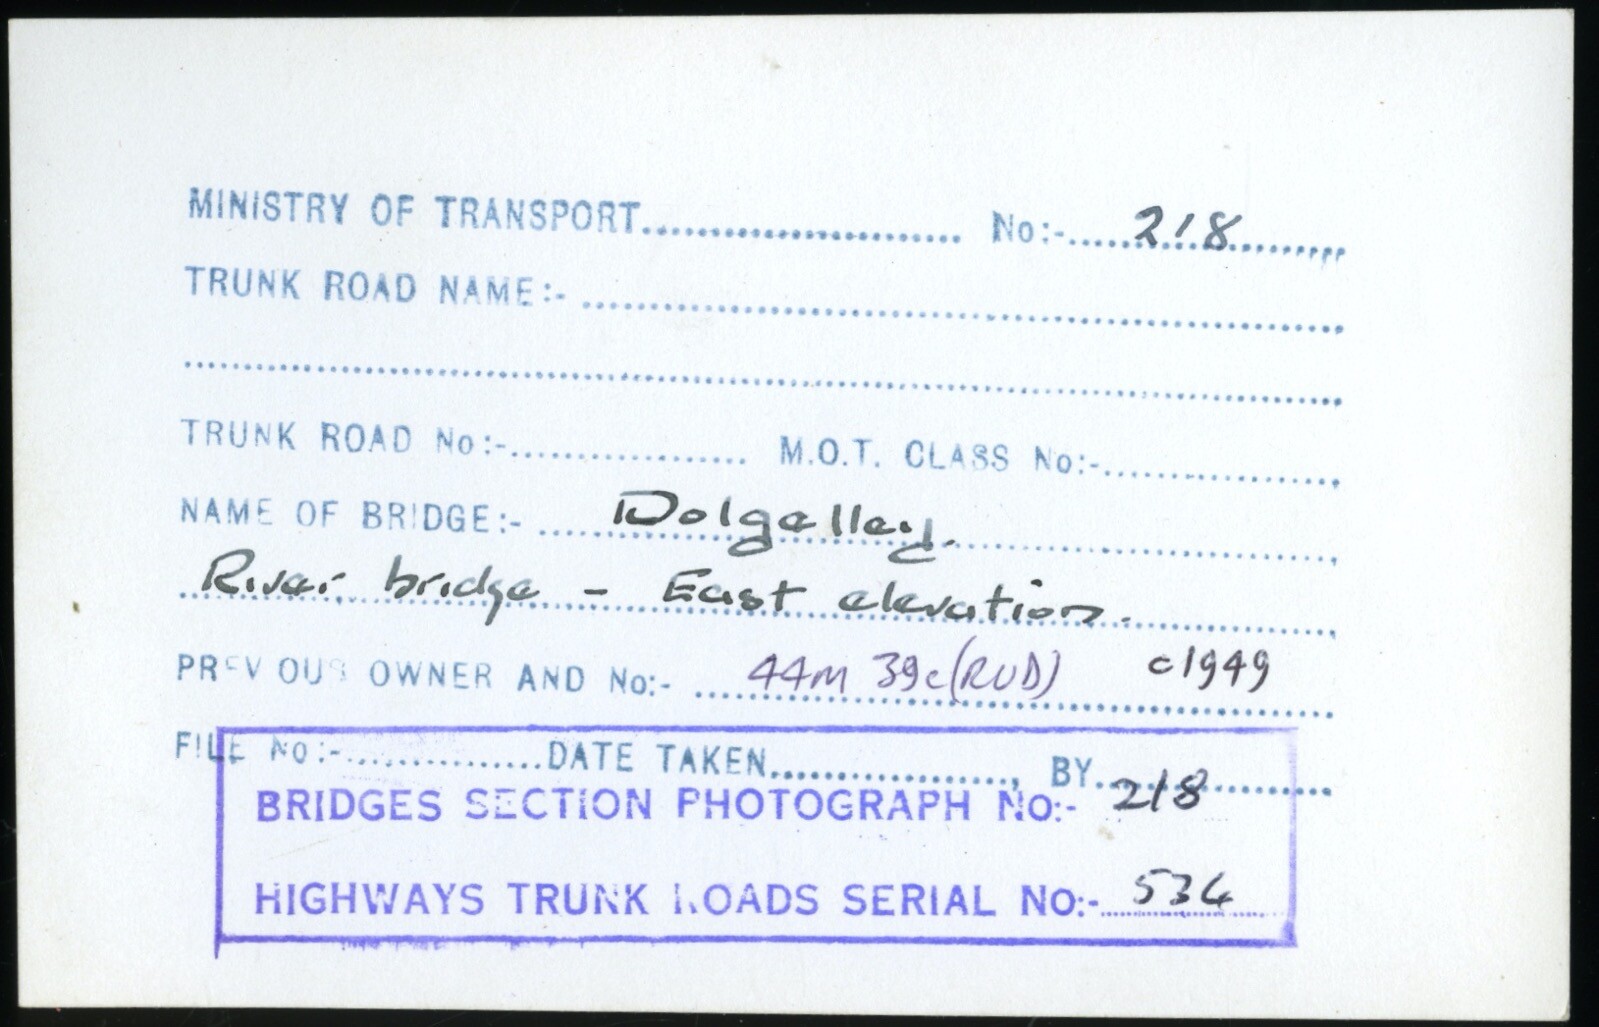 MINISTRY OF TRANSPORT........................ No:-.....218..........
TRUNK ROAD NAME:- ........................................
........................................
TRUNK ROAD No:-.................. M.O.T. CLASS No:-..................
NAME OF BRIDGE:- ....Dolgelley.....
River bridge - East elevation.
PREVIOUS OWNER AND No:- ....44m 39c (RUD) c1949
FILE No:-................DATE TAKEN...................., BY..................
BRIDGES SECTION PHOTOGRAPH No:- 218
HIGHWAYS TRUNK ROADS SERIAL NO:-..534......